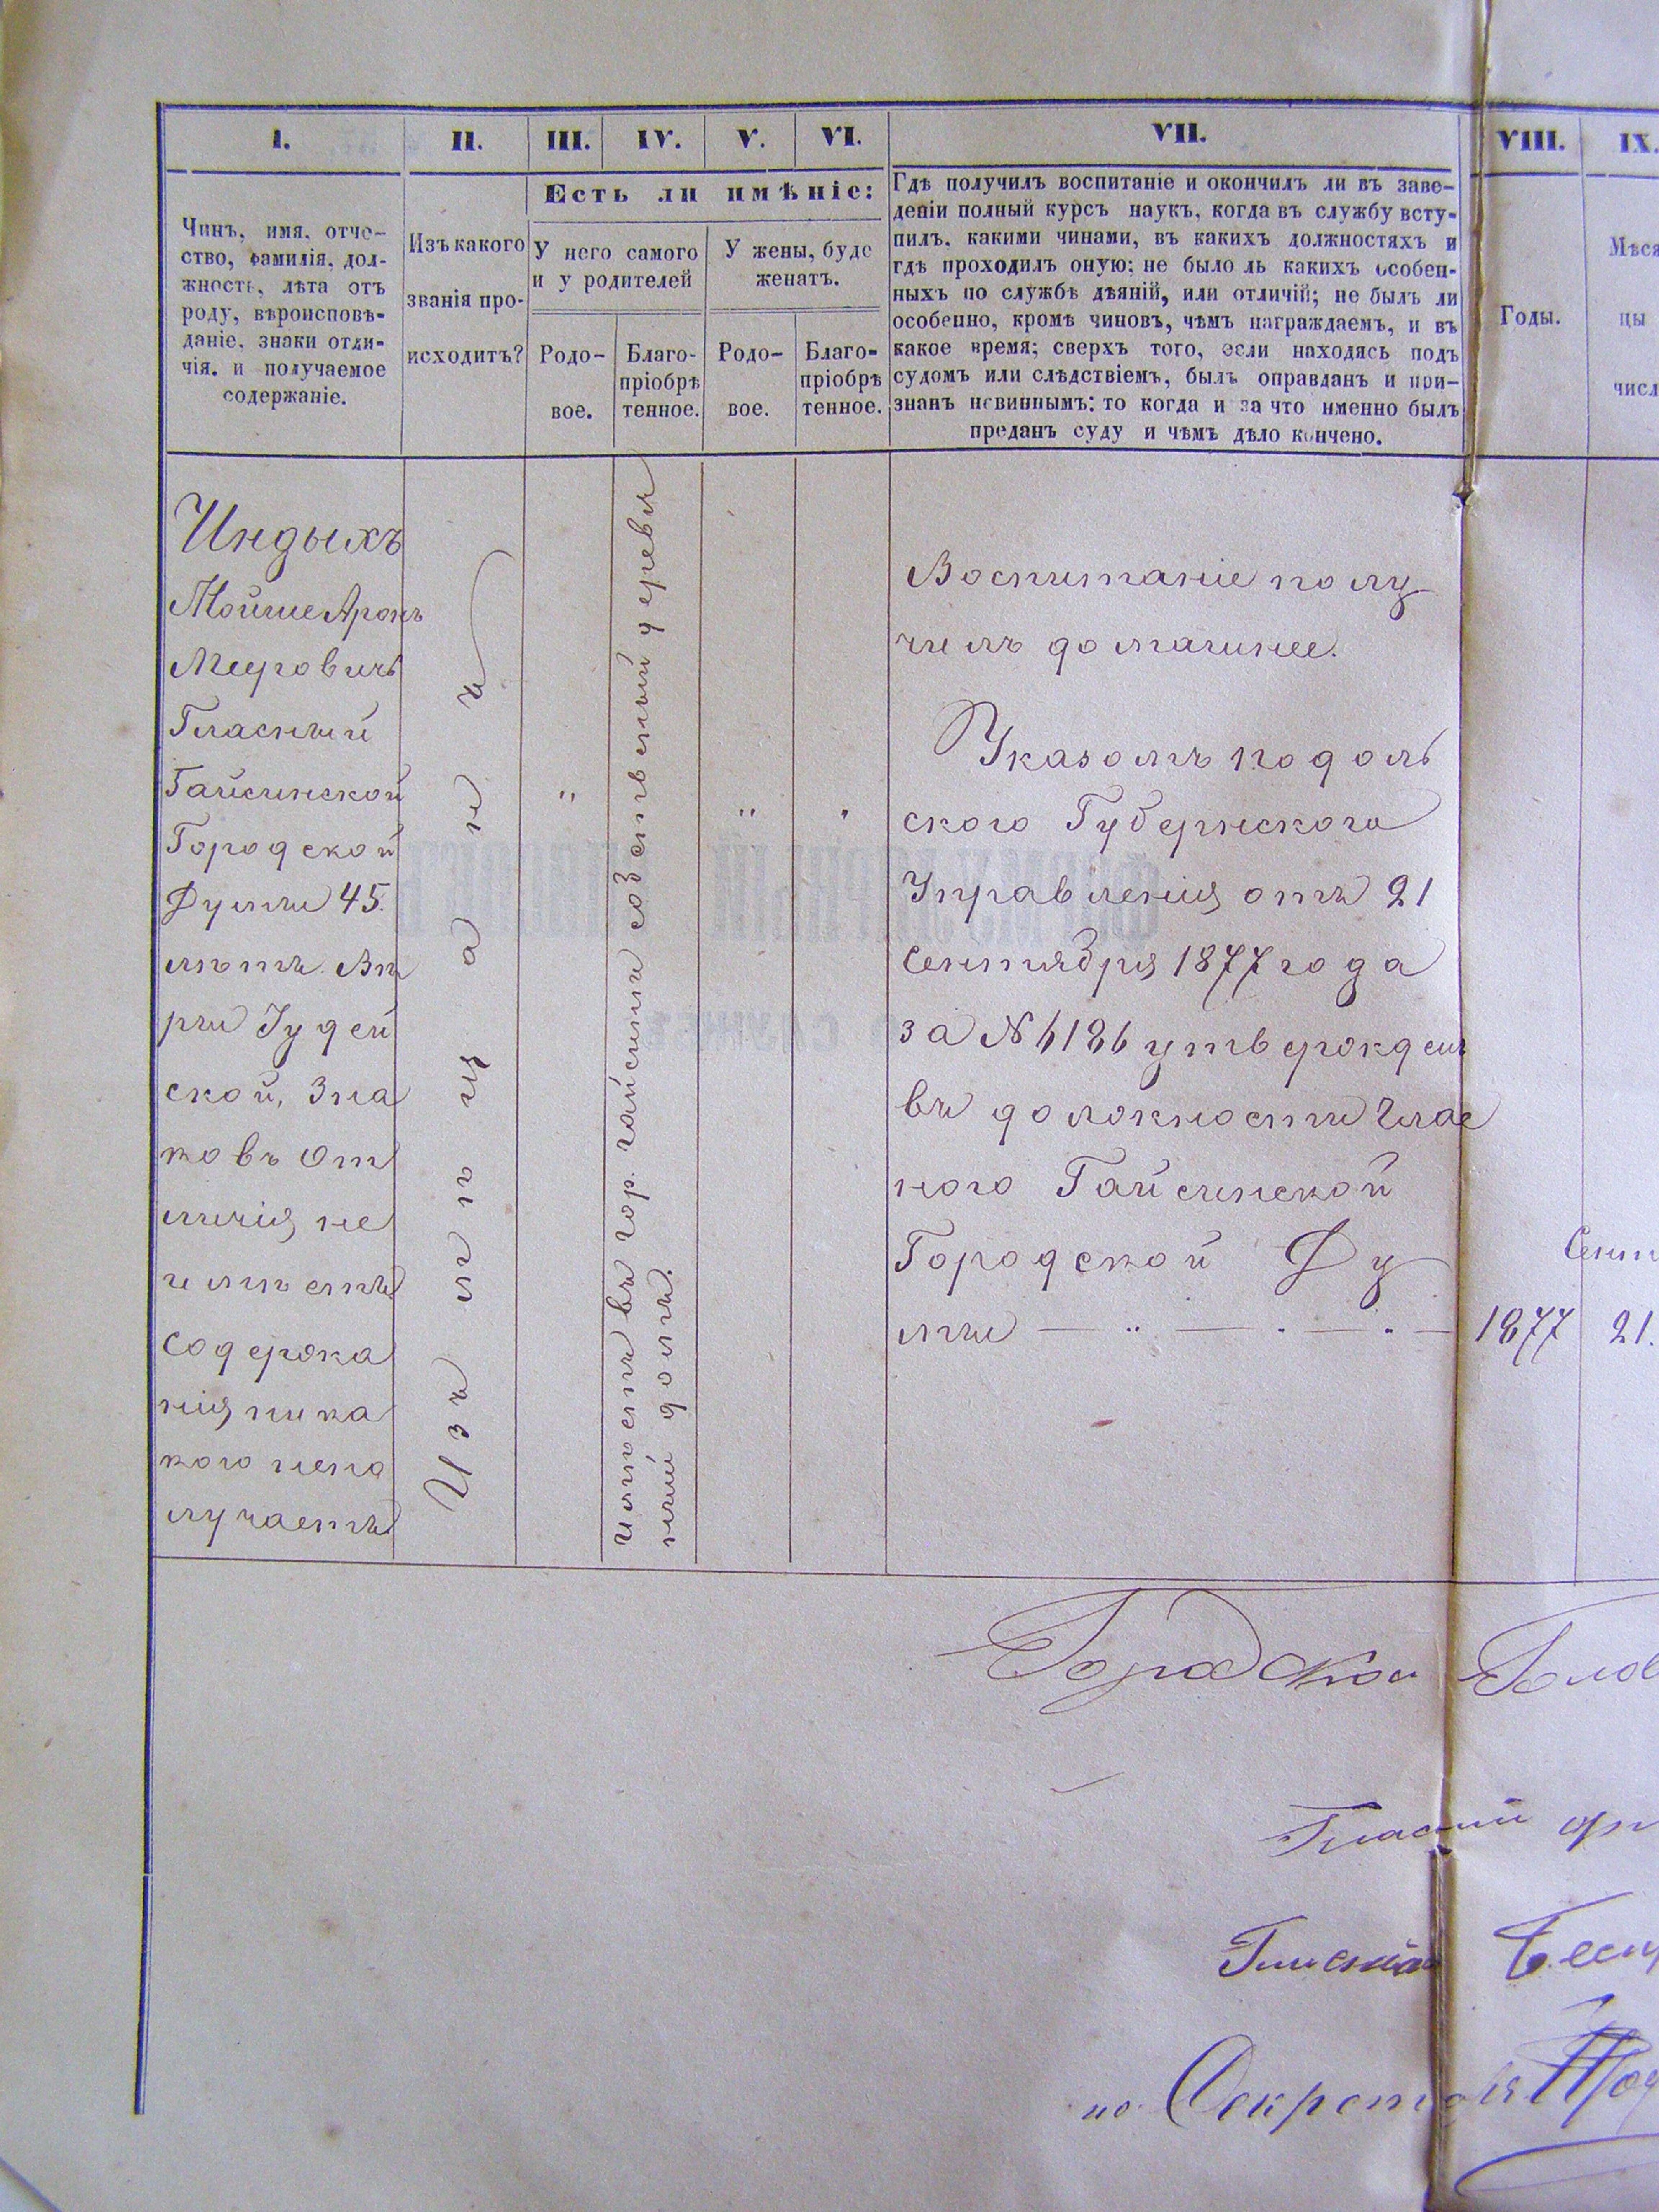 I. II. III. IV. V. VI. VII. VIII. IX.
Чинъ, имя, отче-
ство, фамилія, дол-
жность, лѣта отъ
роду, вѣроисповѣ-
даніе, знаки отли-
чія, и получаемое
содержаніе.
Изъ какого
званія про-
исходитъ?
Есть ли имѣніе:
У него самого
и у родителей
У жены, буде
женатъ.
Родо-
вое.
Благо-
пріобрѣ
тенное.
Родо-
вое.
Благо-
пріобрѣ
тенное.
Гдѣ получилъ воспитаніе и окончилъ ли въ заве-
деніи полный курсъ наукъ, когда въ службу всту-
пилъ, какими чинами, въ какихъ должностяхъ и
гдѣ проходилъ оную; не было ль какихъ особен-
ныхъ по службѣ дѣяній, или отличій; не былъ ли
особенно, кромѣ чиновъ, чѣмъ награждаемъ, и въ
какое время; сверхъ того, если находясь подъ
судомъ или слѣдствіемъ, былъ оправданъ и при-
знанъ невиннымъ: то когда и за что именно былъ
преданъ суду и чѣмъ дѣло кончено.
Годы.
Мѣся
цы
числ
Индыхъ
Мойше Аронъ
Мееровичъ
Гласный
Гайсинской
Городской
Думы 45.
лѣтъ. Вѣ
ры Іудей
ской, Зна
ковъ От
личія не
имѣетъ
Содержа
нія ника
кого непо
лучаетъ
Изъ мѣщанъ
имѣетъ въ гор. Гайсинѣ собственный деревян
ный домъ.
Воспитаніе полу
чилъ домашнее.
Указомъ Подоль
ского Губернскаго
Управленія отъ 21
Сентября 1877 года
за № 6186 утвержденъ
въ должности Глас
ного Гайсинской
Городской Ду
мы — „ — . — . — 1877 21.
Сент
Городской Голов
Гласный
Гласный
по. Секретаря